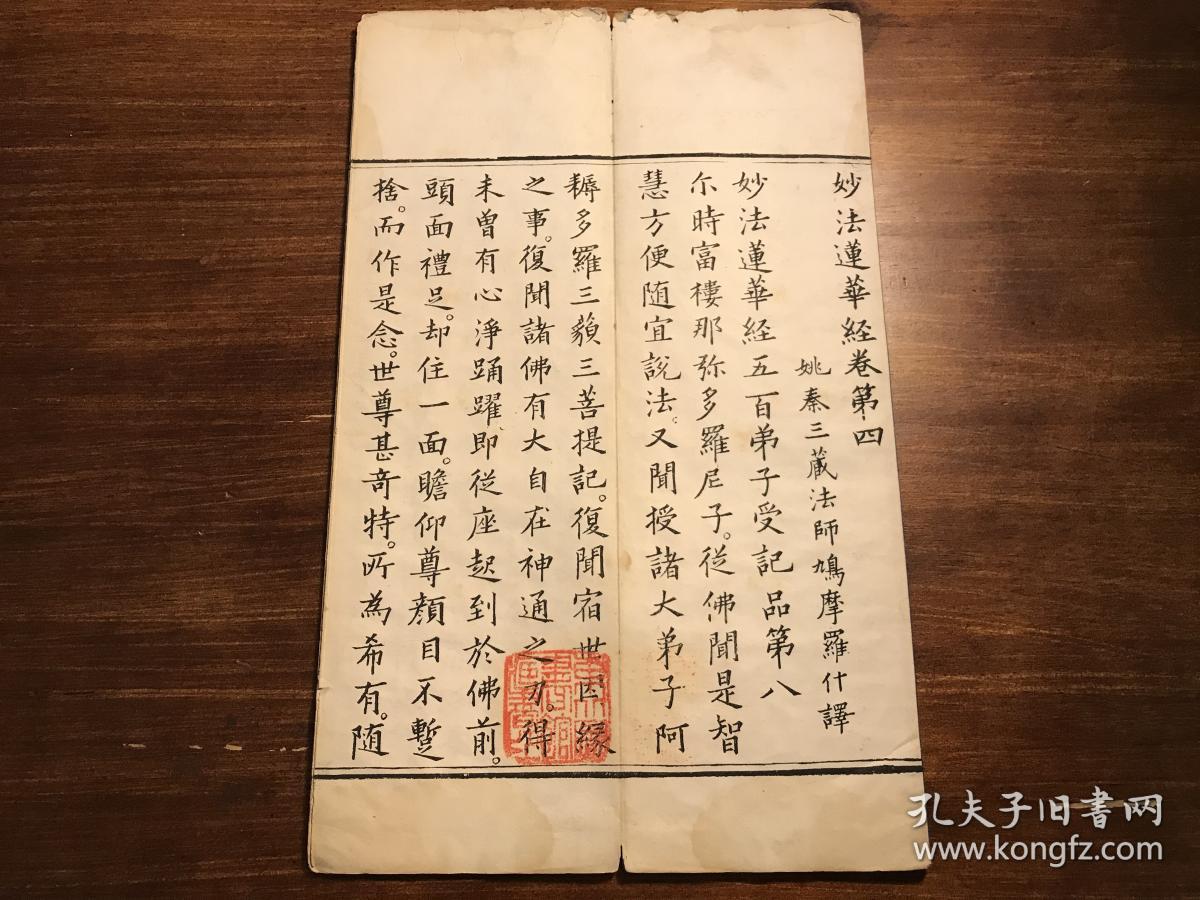 妙法蓮華経卷第四
姚秦三蔵法師鳩摩羅什譯
妙法蓮華経五百弟子受記品第八
尓時富樓那弥多羅尼子。従佛聞是智
慧方便随宜説法。又聞授諸大弟子阿
耨多羅三藐三菩提記。復聞宿世因緣
之事。復聞諸佛有大自在神通之力。得
未曾有心淨踊躍、即従座起到於佛前。
頭面禮足。却住一面。瞻仰尊顔目不蹔
捨。而作是念。世尊甚竒特。所為希有。随
孔夫子旧书网
www.kongfz.com